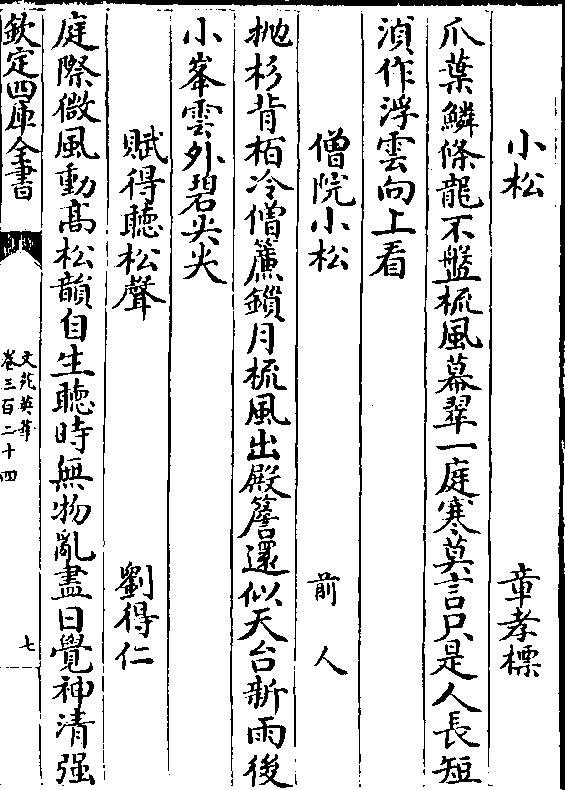 小松 章孝標
爪葉鱗條龍不盤梳風幕翠一庭寒莫言只是人長短
湏作浮雲向上看
僧院小松 前人
抛杉背栢冷僧簾鎖月梳風出殿簷還似天台新雨後
小峯雲外碧尖尖
賦得聽松聲 劉得仁
庭際微風動髙松韻自生聽時無物亂盡日覺神清强
欽定四庫全書
文苑英華
卷三百二十四
七